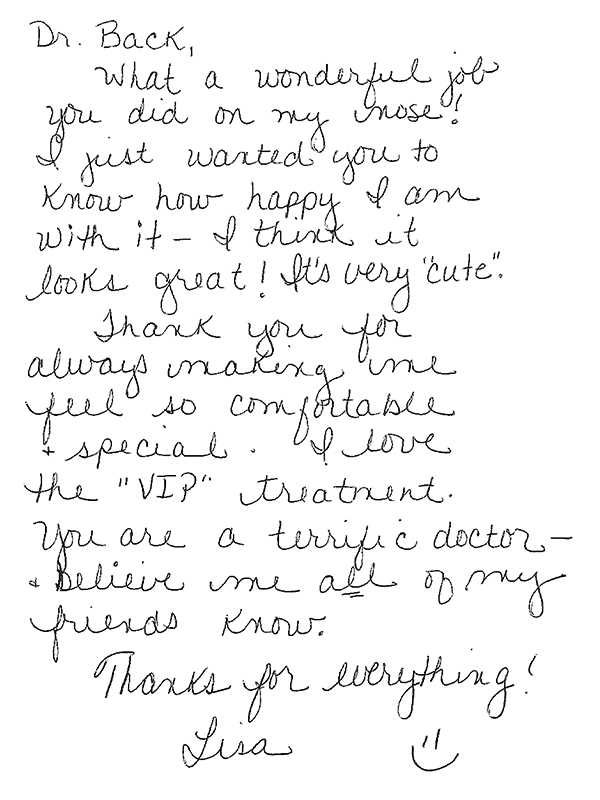 Dr. Back,
What a wonderful job
you did on my nose!
I just wanted you to
know how happy I am
with it – I think it
looks great! It's very "cute".
Thank you for
always making me
feel so comfortable
+ special. I love
the "VIP" treatment.
You are a terrific doctor –
+ believe me all of my
friends know.
Thanks for everything!
Lisa